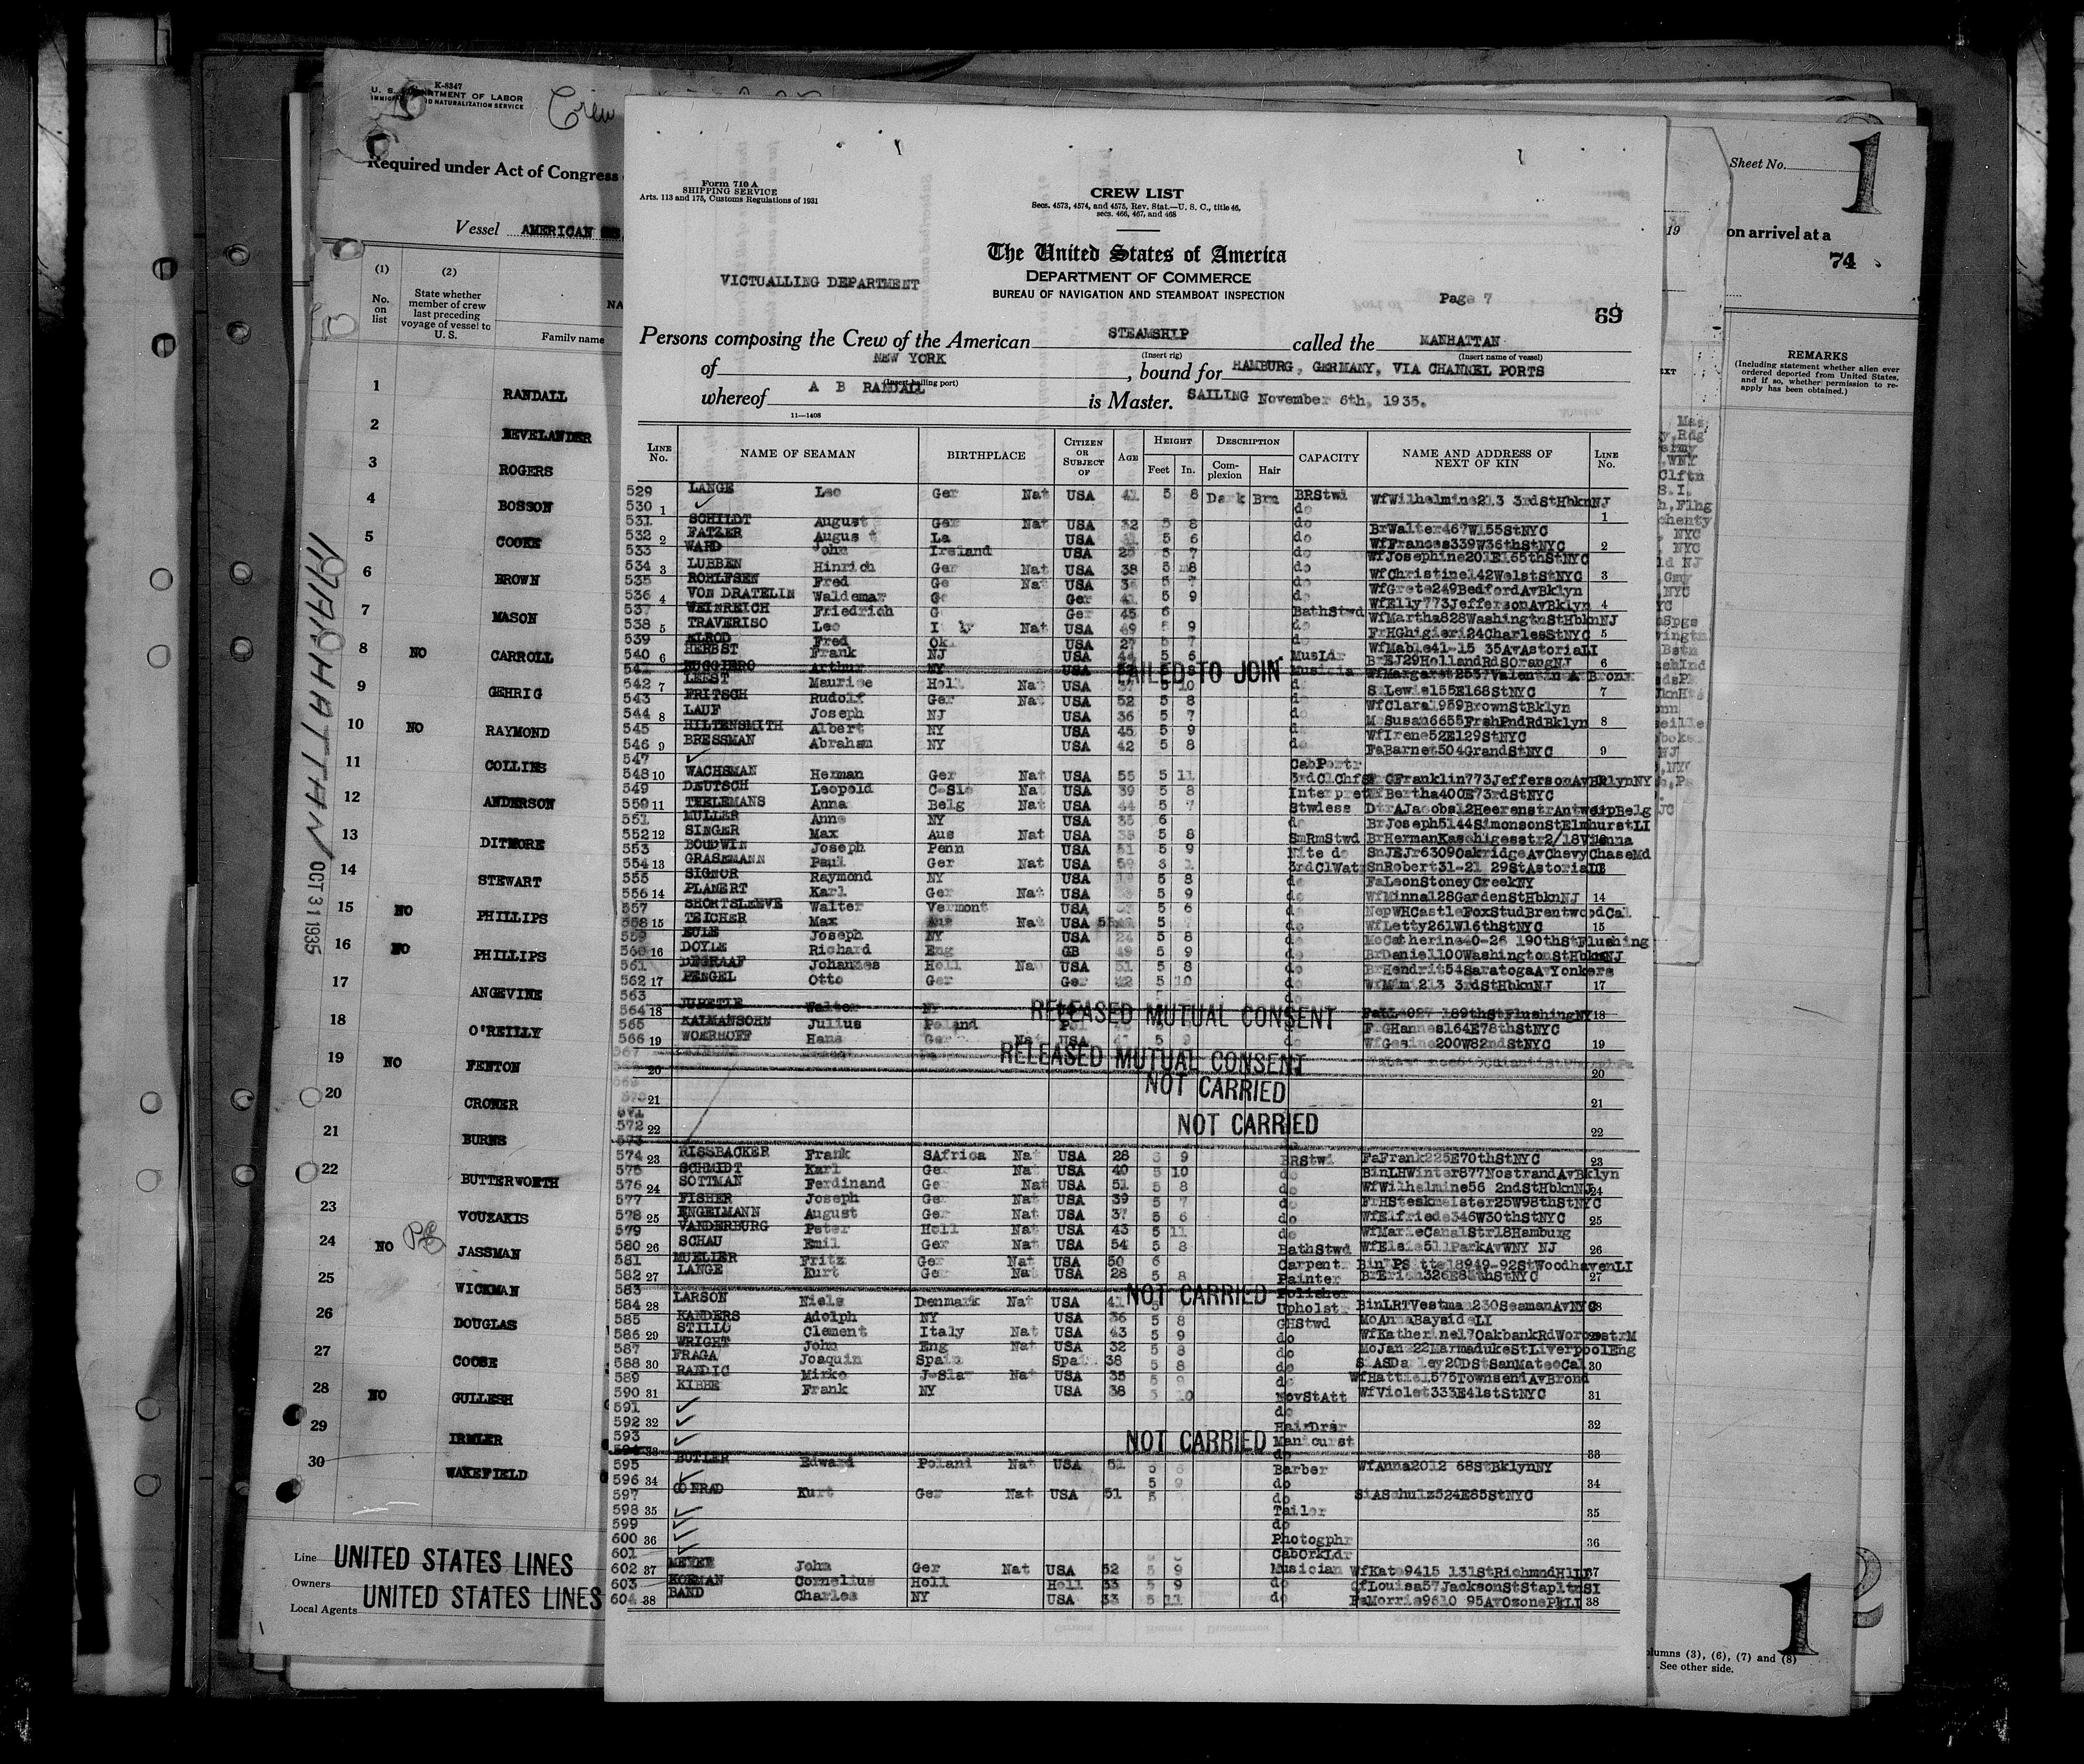 K-8347
U. S. DEPARTMENT OF LABOR
IMMIGRATION AND NATURALIZATION SERVICE
Crew
Required under Act of Congress
Vessel AMERICAN
(1) (2)
No. on list
State whether member of crew last preceding voyage of vessel to U. S.
Family name
1 RANDALL
2 NEVELANDER
3 ROGERS
4 BOSSON
5 COOKE
6 BROWN
7 MASON
8 NO CARROLL
9 GEHRIG
10 NO RAYMOND
11 COLLINS
12 ANDERSON
13 DITMORE
14 STEWART
15 NO PHILLIPS
16 NO PHILLIPS
17 ANGEVINE
18 O'REILLY
19 NO FENTON
20 CRONER
21 BURNS
22 BUTTERWORTH
23 VOUZAKIS
24 NO JASSMAN
25 WICKMAN
26 DOUGLAS
27 COOSE
28 NO GULLESH
29 IRMLER
30 WAKEFIELD
MANHATTAN OCT 31 1935
Line UNITED STATES LINES
Owners UNITED STATES LINES
Local Agents
Form 710 A
SHIPPING SERVICE
Arts. 113 and 175, Customs Regulations of 1931
CREW LIST
Secs. 4573, 4574, and 4575, Rev. Stat.—U. S. C., title 46,
secs. 466, 467, and 468
The United States of America
DEPARTMENT OF COMMERCE
BUREAU OF NAVIGATION AND STEAMBOAT INSPECTION
VICTUALLING DEPARTMENT
Page 7
69
Persons composing the Crew of the American STEAMSHIP called the MANHATTAN
(Insert rig) (Insert name of vessel)
of NEW YORK, bound for HAMBURG, GERMANY, VIA CHANNEL PORTS
(Insert hailing port)
whereof A B RANDALL is Master. SAILING November 6th, 1935.
11—1408
LINE No. NAME OF SEAMAN BIRTHPLACE CITIZEN OR SUBJECT OF AGE HEIGHT Feet In. DESCRIPTION Complexion Hair CAPACITY NAME AND ADDRESS OF NEXT OF KIN LINE No.
529 LANGE Leo Ger Nat USA 41 5 8 Dark Brn BRStwd WfWilhelmine213 3rdStHbknNJ
530 1 do 1
531 SCHILDT August Ger Nat USA 32 5 8 do BrWalter467W155StNYC
532 2 FATZER August La USA 5 6 do WfFrances339W36thStNYC 2
533 WARD John Ireland USA 5 7 do WfJosephine201E165thStNYC
534 3 LUBBEN Hinrich Ger Nat USA 38 5 8 do WfChristine142WelstStNYC 3
535 ROHLFSEN Fred Ge Nat USA 5 7 do WfGrete249BedfordAvBklyn
536 4 VON DRATELIN Waldemar Ger 41 5 9 do WfElly773JeffersonAvBklyn 4
537 WEINREICH Friedrich G Ger 45 6 BathStwd WfMartha828WashingtnStHbknNJ
538 5 TRAVERISO Leo Nat USA 49 5 9 do FrHGhigieri24CharlesStNYC 5
539 ELROD Fred Ok USA 27 5 7 do WfMable41-15 35AvAstoriaLI
540 6 HERBST Frank NJ USA 44 5 6 MusLdr BrEJ29HollandRdSOrangNJ 6
541 RUGGIERO Arthur NY USA FAILED TO JOIN Musicia WfMargaret2537Valentin Bronx
542 7 LEEST Maurice Holl Nat USA 37 5 10 Lewis155E168StNYC 7
543 FRITSCH Rudolf Ger Nat USA 52 5 8 WfClara1959BrownStBklyn
544 8 LAUF Joseph NJ USA 36 5 7 Susan6655FrshPndRdBklyn 8
545 HILTENSMITH Albert NY USA 45 5 9 WfIrene52E129StNYC
546 9 BRESSMAN Abraham NY USA 42 5 8 FaBarnet504GrandStNYC 9
547 CabPortr
548 10 WACHSMAN Herman Ger Nat USA 55 5 11 3rdClChfS Franklin773JeffersonAvBklynNY
549 DEUTSCH Leopold C-Slo Nat USA 39 5 8 Interpret WfBertha400E73rdStNYC
550 11 THELEMANS Anna Belg Nat USA 44 5 7 Stwdess DtrAJacobs12HeerenstrAntwerpBelg
551 MULLER Anne NY USA 35 6 do BrJoseph5144SimonsonStElmhurstLI
552 12 SINGER Max Aus Nat USA 5 8 SmRmStwd BrHermanKaschigesstr2/18Vienna
553 BOUDWIN Joseph Penn USA 51 5 9 Nite do SnJEJr6309OakridgeAvChevyChaseMd
554 13 GRASEMANN Paul Ger Nat USA 59 3rdClWat SnRobert31-21 29StAstoriaLI
555 SIGNOR Raymond NY USA 5 8 do FaLeonStoneyCreekNY
556 14 PLANERT Karl Ger Nat USA 5 9 do WfMinna128GardenStHbknNJ 14
557 SHORTSLEEVE Walter Vermont USA 5 6 do NepWHCastleFoxStudBrentwoodCal
558 15 TEICHER Max Aus Nat USA 5 do WfLetty261W16thStNYC 15
559 EULE Joseph NY USA 24 5 8 do MoCatherine40-26 190thStFlushing
560 16 DOYLE Richard Eng GB 49 5 9 do BrDaniel100WashingtonStHbknNJ
561 DEGRAAF Johannes Holl Na USA 51 5 8 do BrHendrit54SaratogaAvYonkers
562 17 PENGEL Otto Ger Ger 5 10 do WfMimi213 3rdStHbknNJ 17
563
564 18 Walter NY RELEASED MUTUAL CONSENT 189thStFlushingNY 18
565 KALMANSOHN Julius Poland Pol FrGHannes164E78thStNYC
566 19 WOERHOFF Hans Ger Nat USA 5 9 WfGesine200W82ndStNYC 19
567 RELEASED MUTUAL CONSENT
20 20
NOT CARRIED
21 21
571
572 22 NOT CARRIED 22
573
574 23 RISSBACKER Frank SAfrica Nat USA 28 9 BRStwd FaFrank225E70thStNYC 23
575 SCHMIDT Karl Ger Nat USA 40 5 10 do BinLHWinter877NostrandAvBklyn
576 24 SOTTMAN Ferdinand Ge Nat USA 51 5 8 do WfWilhelmine56 2ndStHbknNJ 24
577 FISHER Joseph Ge Nat USA 39 5 7 do 25W98thStNYC
578 25 ENGELMANN August Ger Nat USA 37 5 6 do WfElfriede346W30thStNYC 25
579 VANDERBURG Peter Holl Nat USA 43 5 11 do WfMarieCanalStr18Hamburg
580 26 SCHAU Emil Ger Nat USA 54 5 8 BathStwd WfElsie511ParkAvWNY NJ 26
581 MUELLER Fritz Ger Nat USA 50 6 Carpentr 8949-92StWoodhavenLI
582 27 LANGE Kurt Ge Nat USA 28 5 8 Painter BrErich326E8 thStNYC 27
583 NOT CARRIED Polisher
584 28 LARSON Niels Denmark Nat USA 41 5 Upholstr BinLRTVestman230SeamanAvNYC 28
585 KANDERS Adolph NY USA 36 5 8 GHStwd MoAnnaBaysideLI
586 29 STILLO Clement Italy Nat USA 43 5 9 do WfKatherine17OakbankRdWorcestrM
587 WRIGHT John Eng Nat USA 32 5 8 do MoJan 22MarmadukeStLiverpoolEng
588 30 FRAGA Joaquin Spain Spai 38 5 8 do 20DStSanMateoCal 30
589 RANDIC Mirko J-Slav Nat USA 35 5 9 do WfHattie1575TownsendAvBronx
590 31 KIBBE Frank NY USA 38 5 10 NovStAtt WfViolet333E41stStNYC 31
591 do
592 32 HairDrsr 32
593 NOT CARRIED Manicurst
594 33 do 33
595 BUTLER Edward Poland Nat USA 51 5 6 Barber WfAnna2012 68StBklynNY
596 34 5 9 do 34
597 CONRAD Kurt Ger Nat USA 51 5 do SiASchulz524E85StNYC
598 35 Tailor 35
599 do
600 36 Photogphr 36
601 CabOrkLdr
602 37 MEYER John Ger Nat USA 52 5 9 Musician WfKate9415 131StRichmndHill 37
603 KORMAN Cornelius Holl Holl 33 5 9 do Louisa57JacksonStStapltnSI
604 38 BAND Charles NY USA 33 5 11 do FaMorris9610 95AvOzonePkLI 38
Sheet No. 1
19
on arrival at a
74
REMARKS
(Including statement whether alien ever ordered deported from United States, and if so, whether permission to reapply has been obtained.)
1
columns (3), (6), (7) and (8)
See other side.
2